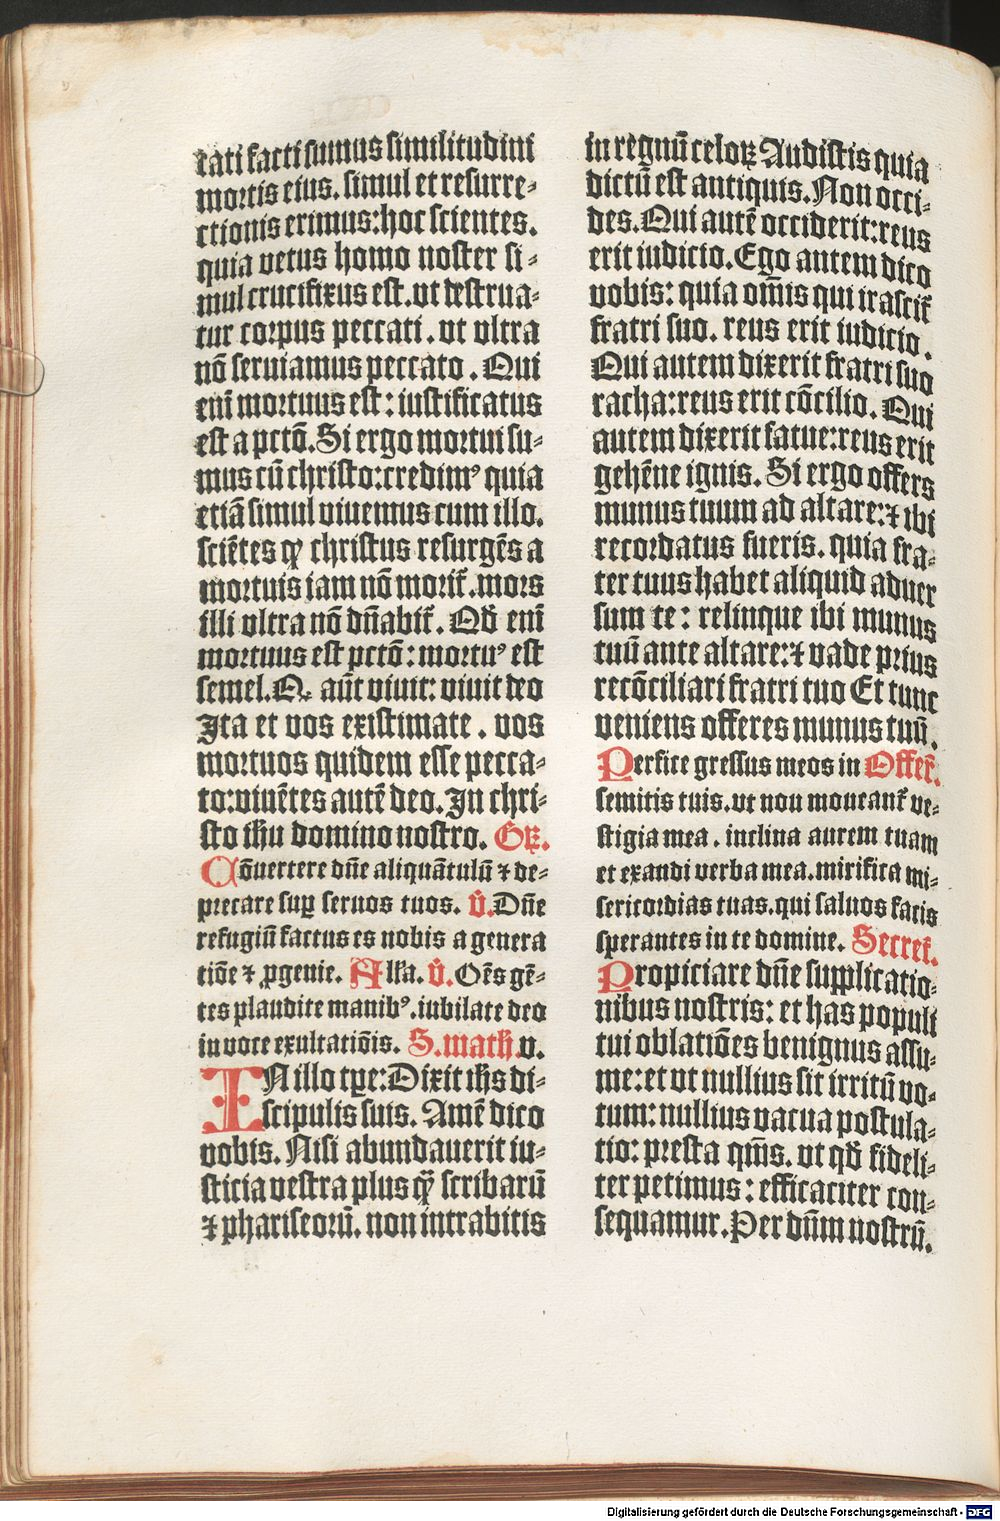 tati facti sumus similitudini
mortis eius. simul et resurre-
ctionis erimus: hoc scientes.
quia vetus homo noster si-
mul crucifixus est. vt destrua-
tur corpus peccati. vt vltra
nō seruiamus peccato. Qui
eni̅ mortuus est: iustificatus
est a pctō. Si ergo mortui su-
mus cū christo: credimꝰ quia
etiā simul viuemus cum illo.
sciētes ꝙ christus resurgēs a
mortuis iam nō morit᷑. mors
illi vltra nō dn̄abit᷑. Qd̄ eni̅
mortuus est pctō: mortuꝰ est
semel. Q aūt viuit: viuit deo
Ita et vos existimate. vos
mortuos quidem esse pecca-
to: viuētes autē deo. In chri-
sto ih̄u domino nostro. Gꝝ.
Cōuertere dn̄e aliquātulū ⁊ de-
precare suꝑ seruos tuos. V̊. Dn̄e
refugiū factus es nobis a genera
tiōe ⁊ ꝓgenie. Alľa. V̊. Oēs gē-
tes plaudite manibꝰ. iubilate deo
in voce exultatiōis. S. math. v.
IN illo tꝑe: Dixit ih̄s di-
scipulis suis. Amē dico
vobis. Nisi abundauerit iu-
sticia vestra plus ꝙ̄ scribarū
⁊ phariseorū. non intrabitis
in regnū celoꝝ Audistis quia
dictū est antiquis. Non occi-
des. Qui autē occiderit: reus
erit iudicio. Ego autem dico
vobis: quia om̄is qui irascit᷑
fratri suo. reus erit iudicio.
Qui autem dixerit fratri suo
racha: reus erit cōcilio. Qui
autem dixerit fatue: reus erit
gehēne ignis. Si ergo offers
munus tuum ad altare: ⁊ ibi
recordatus fueris. quia fra-
ter tuus habet aliquid aduer
sum te: relinque ibi munus
tuū ante altare: ⁊ vade prius
recōciliari fratri tuo Et tunc
veniens offeres munus tuū.
Perfice gressus meos in Offer̄.
semitis tuis. vt non moueant᷑ ve-
stigia mea. inclina aurem tuam
et exaudi verba mea. mirifica mi-
sericordias tuas. qui saluos facis
sperantes in te domine. Secret᷑.
Propiciare dn̄e supplicatio-
nibus nostris: et has populi
tui oblatiōes benignus assu-
me: et vt nullius sit irritū vo-
tum: nullius vacua postula-
tio: presta qm̄s. vt qd̄ fideli-
ter petimus: efficaciter con-
sequamur. Per dn̄m nostrū.
Digitalisierung gefördert durch die Deutsche Forschungsgemeinschaft - DFG